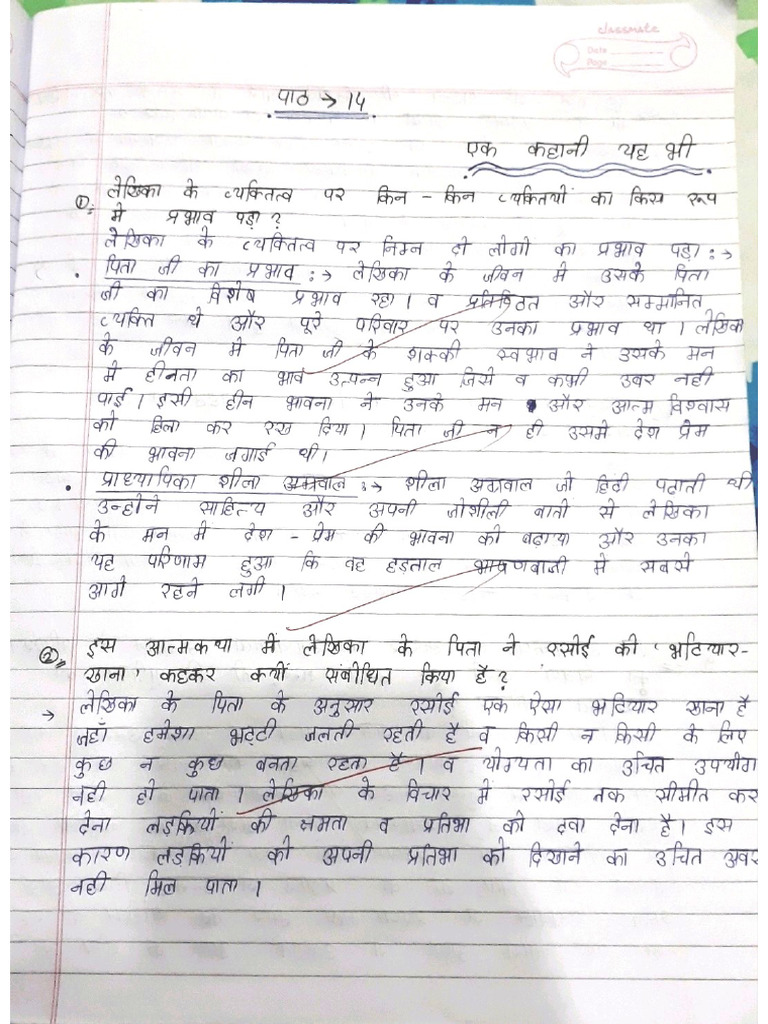 classmate
Date
Page
पाठ → 14
एक कहानी यह भी
① लेखिका के व्यक्तित्व पर किन - किन व्यक्तियों का किस रूप
में प्रभाव पड़ा ?
लेखिका के व्यक्तित्व पर निम्न दो लोगो का प्रभाव पड़ा :→
• पिता जी का प्रभाव :→ लेखिका के जीवन मे उसके पिता
जी का विशेष प्रभाव रहा । व प्रतिष्ठित और सम्मानित
व्यक्ति थे और पूरे परिवार पर उनका प्रभाव था । लेखिका
के जीवन मे पिता जी के शक्की स्वभाव ने उसके मन
मे हीनता का भाव उत्पन्न हुआ जिसे व कभी उबर नही
पाई । इसी हीन भावना ने उनके मन और आत्म विश्वास
को हिला कर रख दिया । पिता जी न ही उसमे देश प्रेम
की भावना जगाई थी ।
• प्राध्यापिका शीला अग्रवाल :→ शीला अग्रवाल जो हिंदी पढ़ाती थी
उन्होने साहित्य और अपनी जोशीली बातो से लेखिका
के मन मे देश - प्रेम की भावना को बढ़ाया और उनका
यह परिणाम हुआ कि वह हड़ताल भाषणबाजी मे सबसे
आगे रहने लगी ।
② इस आत्मकथा में लेखिका के पिता ने रसोई को 'भटियार-
खाना' कहकर क्यों संबोधित किया है ?
→ लेखिका के पिता के अनुसार रसोई एक ऐसा भटियार खाना है
जहाँ हमेशा भट्टी जलती रहती है व किसी न किसी के लिए
कुछ न कुछ बनता रहता है । व योग्यता का उचित उपयोग
नही हो पाता । लेखिका के विचार में रसोई तक सीमीत कर
देना लड़कियों की क्षमता व प्रतिभा को दबा देना है । इस
कारण लड़कियों को अपनी प्रतिभा को दिखाने का उचित अवसर
नही मिल पाता ।